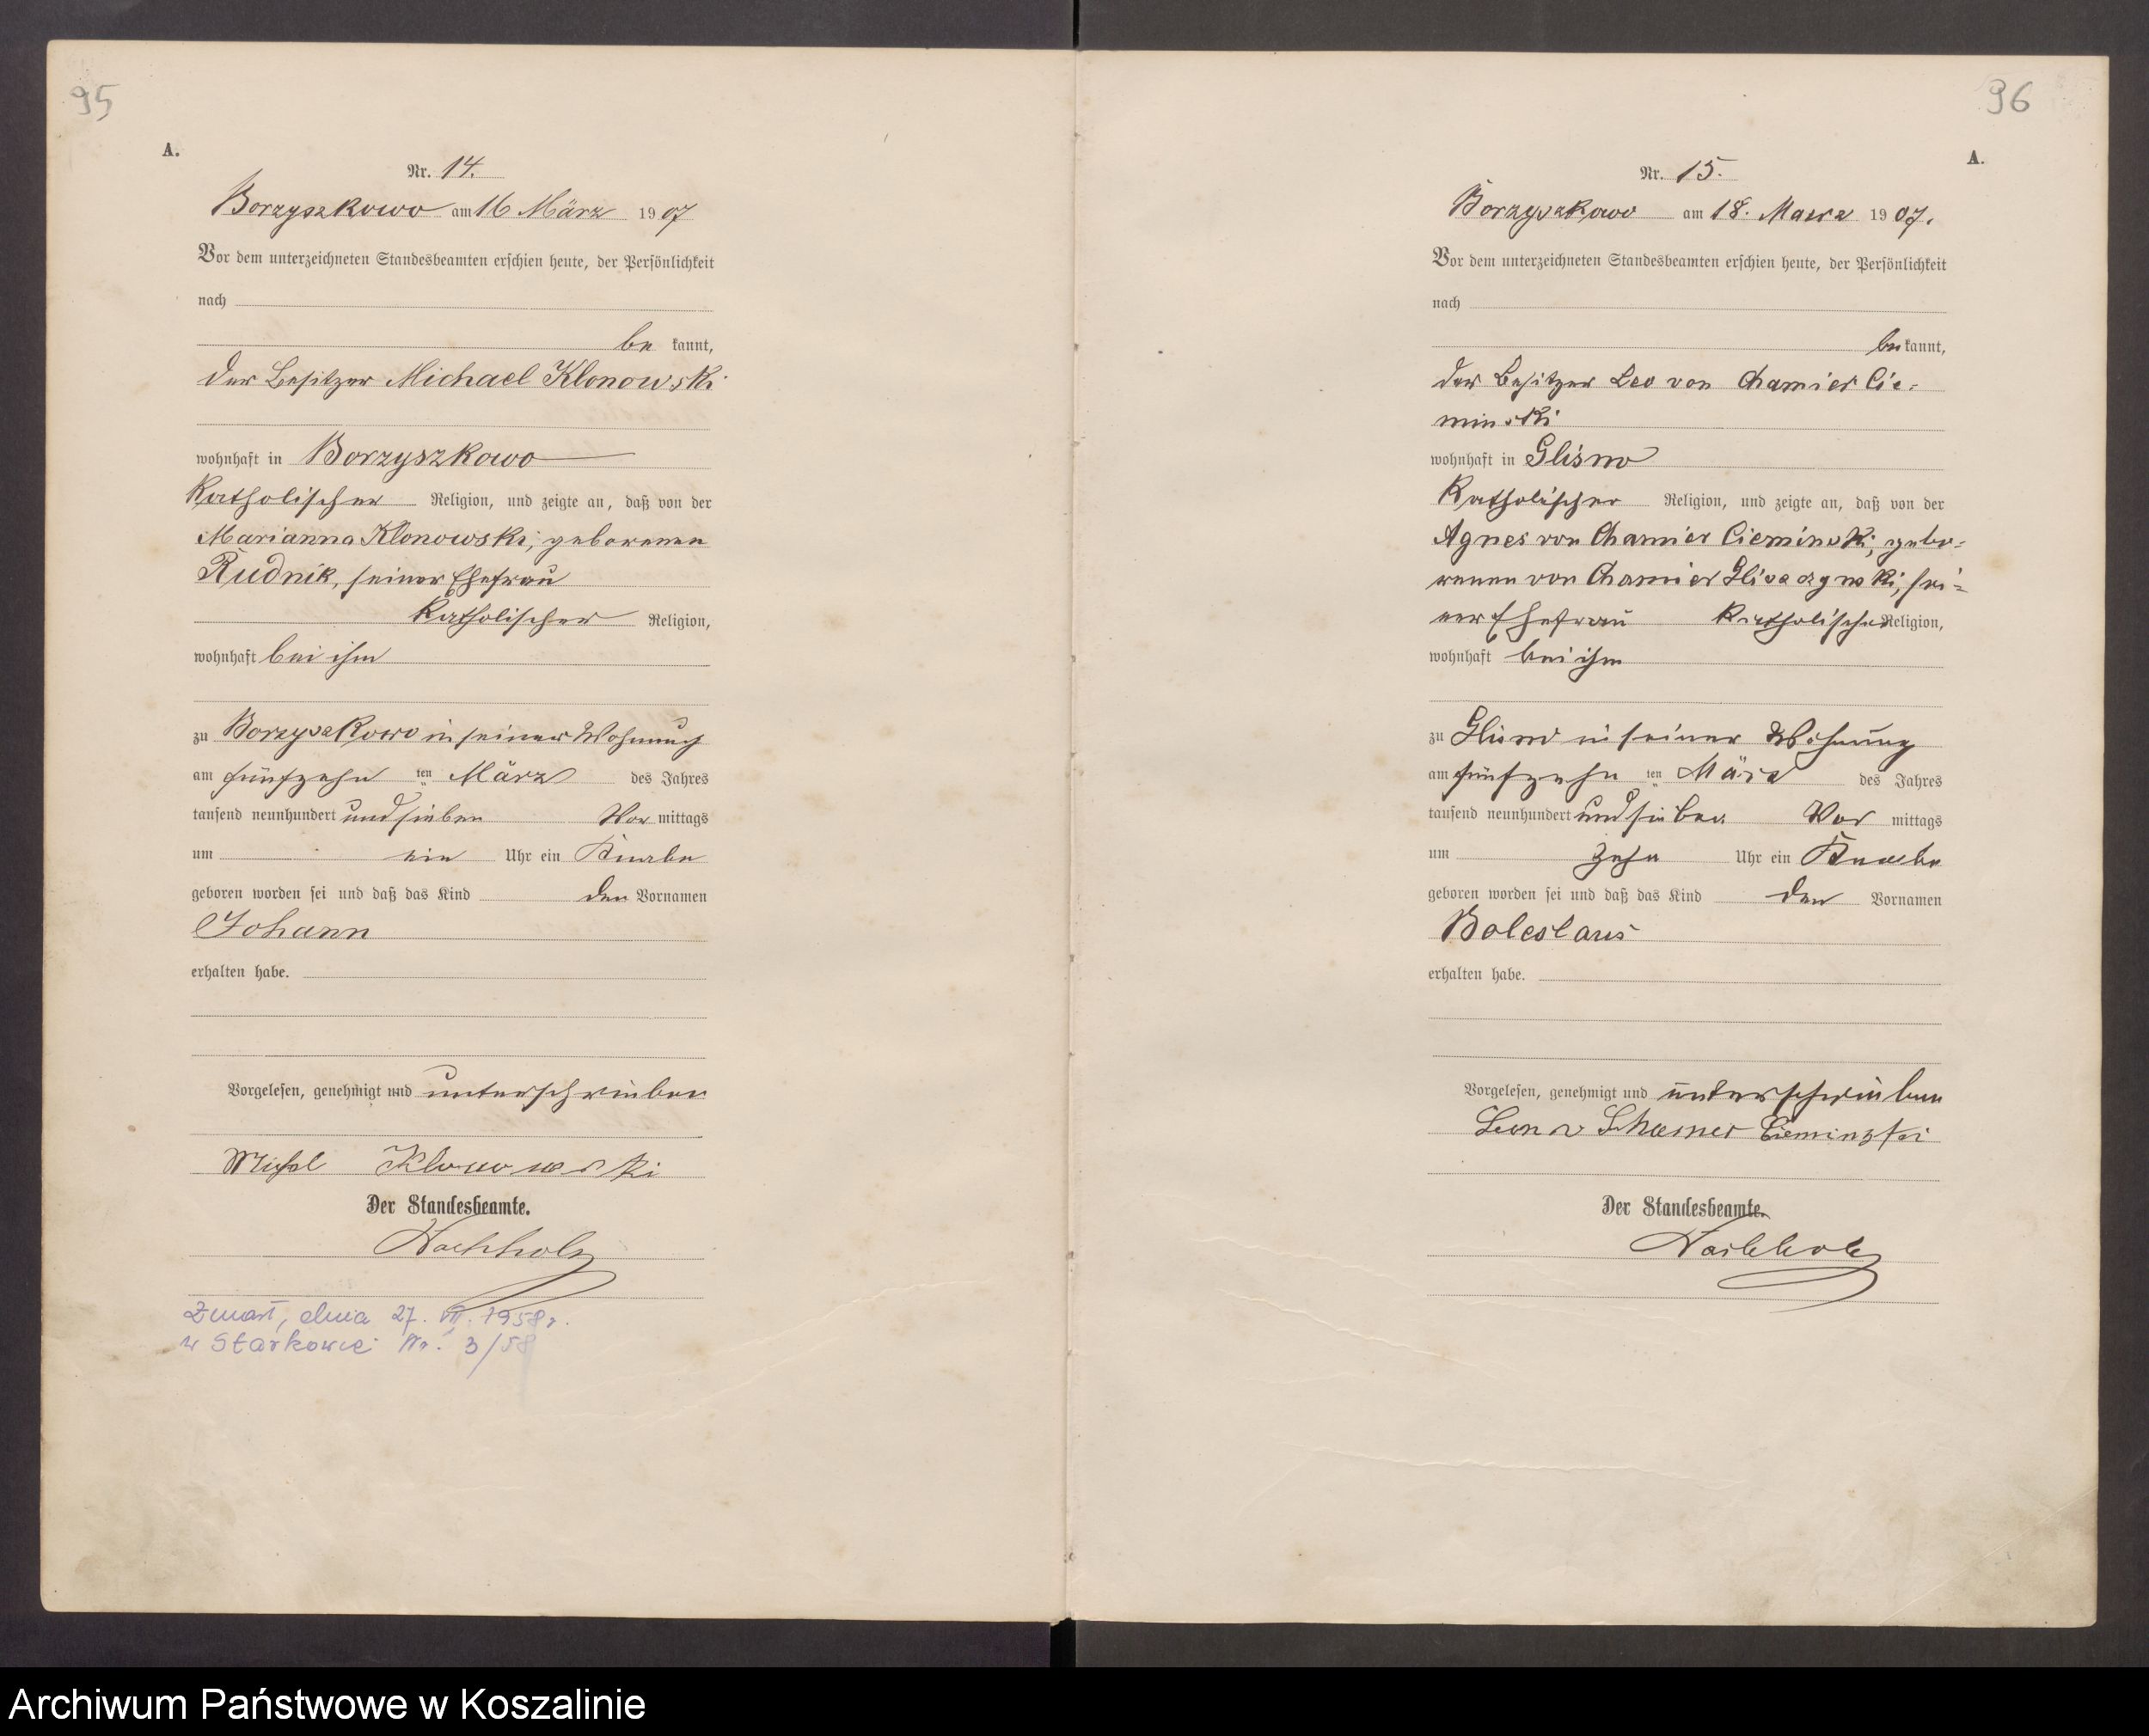 95
A.
Nr. 14.
Borzyszkowo am 16 März 1907
Vor dem unterzeichneten Standesbeamten erschien heute, der Persönlichkeit
nach
be kannt,
der Besitzer Michael Klonowski
wohnhaft in Borzyszkowo
katholischer Religion, und zeigte an, daß von der
Marianna Klonowski, geborenen
Rudnik, seiner Ehefrau
katholischer Religion,
wohnhaft bei ihm
zu Borzyszkowo in seiner Wohnung
am fünfzehn ten März des Jahres
tausend neunhundert und sieben Vor mittags
um ein Uhr ein Knabe
geboren worden sei und daß das Kind den Vornamen
Johann
erhalten habe.
Vorgelesen, genehmigt und unterschrieben
Michel Klonowski
Der Standesbeamte.
Nachholz
Zmarł, dnia 27. VII. 1958 r.
w Starkowie Nr. 3/58
96
A.
Nr. 15.
Borzyszkowo am 18. Maerz 1907.
Vor dem unterzeichneten Standesbeamten erschien heute, der Persönlichkeit
nach
be kannt,
der Besitzer Leo von Chamier Cie-
minski
wohnhaft in Glisno
katholischer Religion, und zeigte an, daß von der
Agnes von Chamier Cieminski, gebo-
renen von Chamier Glisczynski, sei-
ner Ehefrau katholischer Religion,
wohnhaft bei ihm
zu Glisno in seiner Wohnung
am fünfzehn ten März des Jahres
tausend neunhundert und sieben Vor mittags
um zehn Uhr ein Knabe
geboren worden sei und daß das Kind den Vornamen
Boleslaus
erhalten habe.
Vorgelesen, genehmigt und unterschrieben
Leon v Chamier Cieminski
Der Standesbeamte.
Nachholz
Archiwum Państwowe w Koszalinie